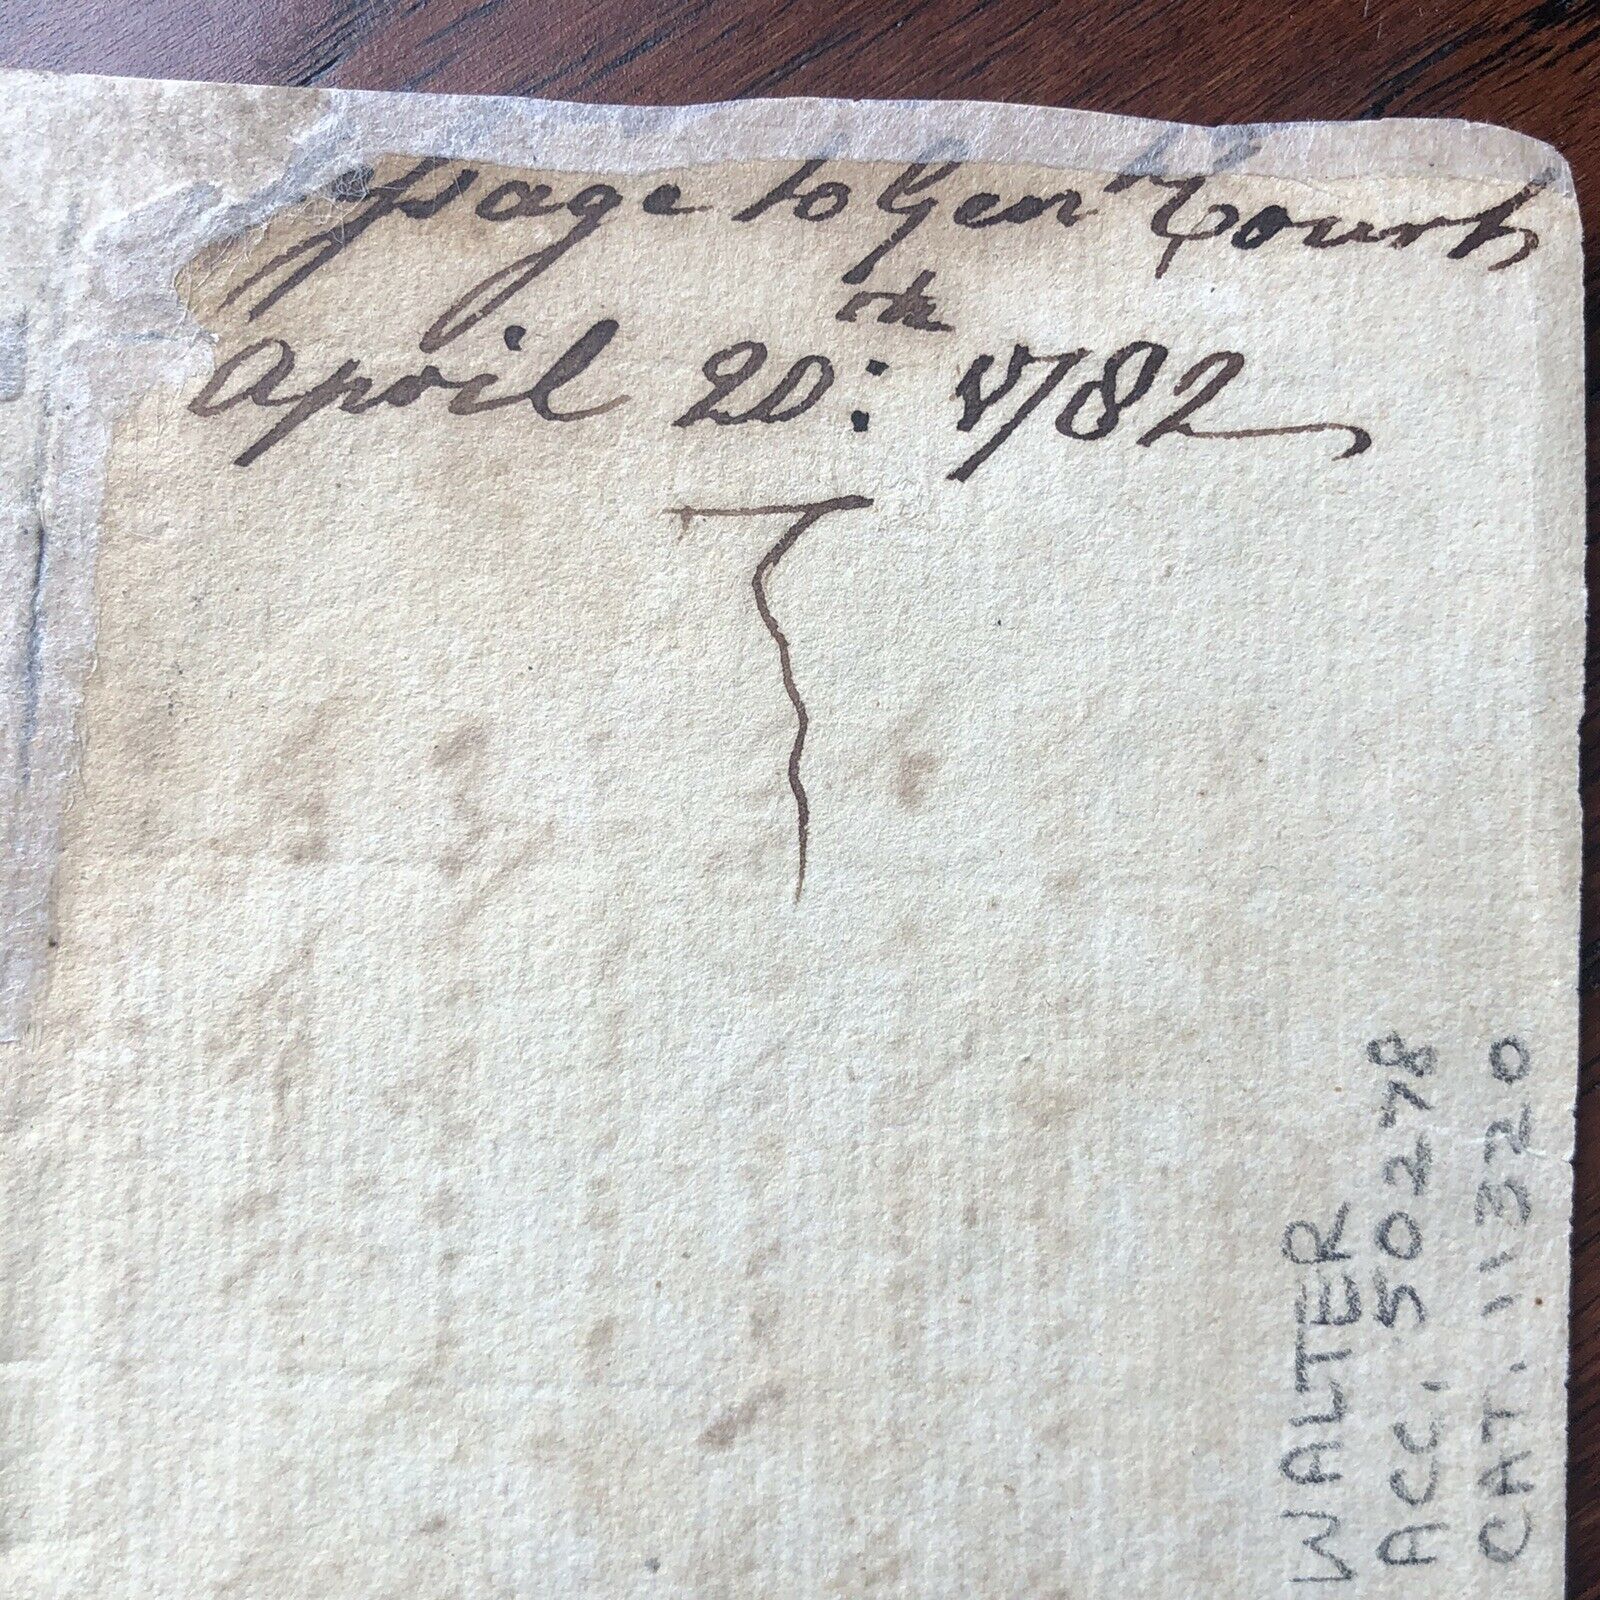 ſsage to Gen^l Court
April 20:^th 1782
WALTER
ACC. 50278
CAT. 11320